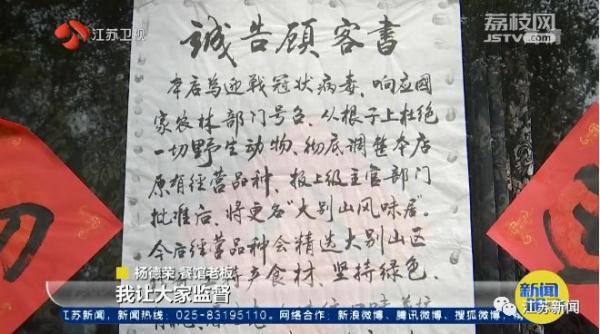 江苏卫视
荔枝网
JSTV.com
诚告顾客书
本店为迎战冠状病毒、响应国
家农林部门号召、从根子上杜绝
一切野生动物、彻底调整本店
原有经营品种、报上级主管部门
批准后、将更名“大别山风味居”。
今后经营品种会精选大别山区
产食材、坚持绿色、
杨德荣 餐馆老板
我让大家监督
新闻
江苏新闻
江苏新闻，新闻热线：025-83195110，网络合作：新浪微博、腾讯微博、搜狐微博